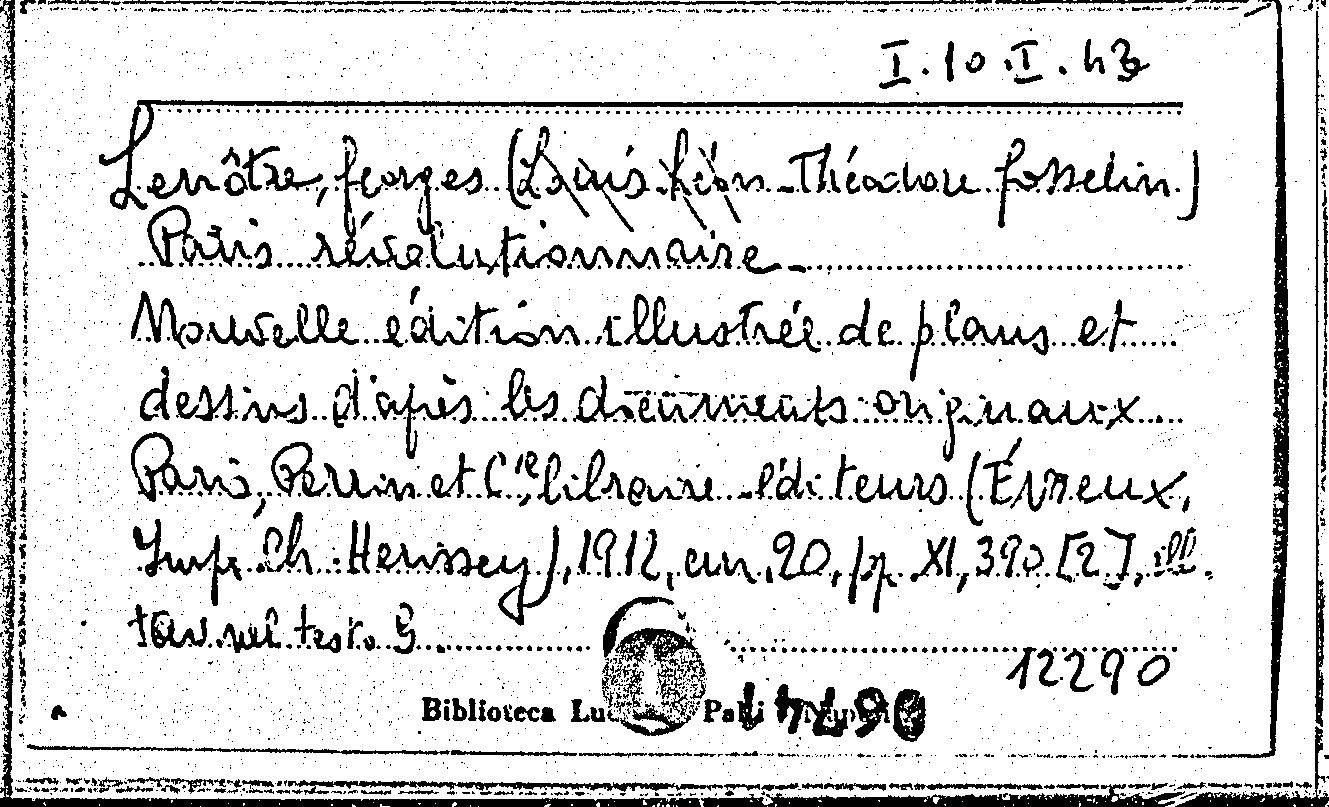 I.10.I.43
Lenôtre, Georges (Louis Léon Théodore Gosselin)
Paris révolutionnaire
Nouvelle édition illustrée de plans et
dessins d'après les documents originaux
Paris, Perrin et C.ie, libraire-éditeurs (Évreux,
Imp. Ch. Herissey), 1912, cm. 20, pp. XI, 390 [2], ill.
tav. nel testo 9
12290
Biblioteca